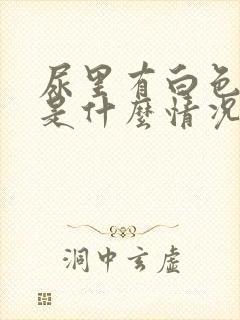 尿里有白色
是什麼情况
洞中玄虚